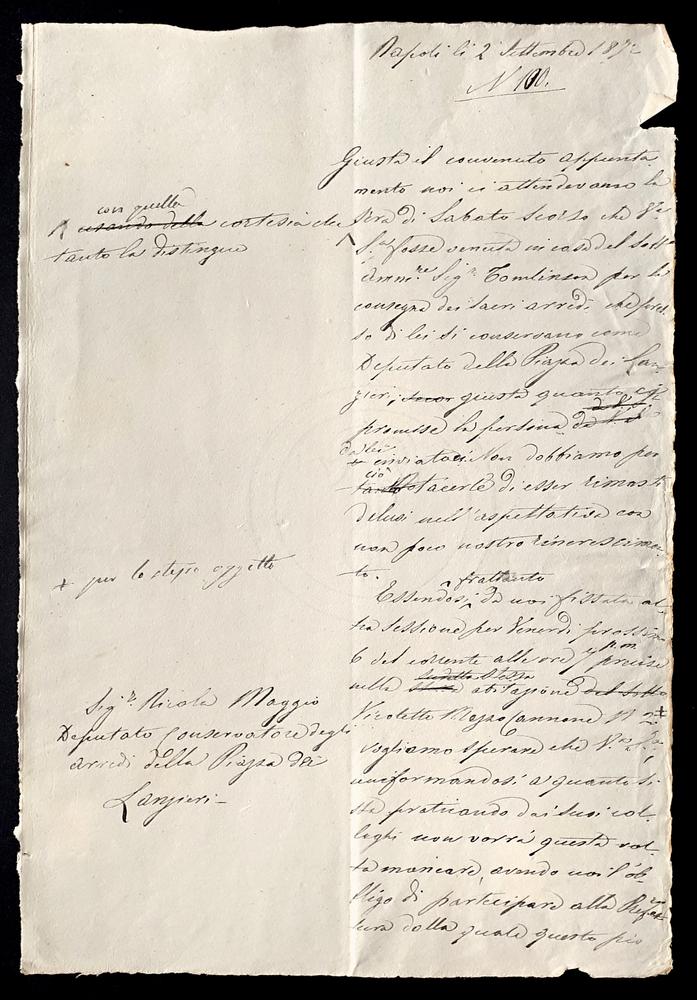 Napoli li 2 Settembre 1872
N 100.
Giusta il convenuto appunta-
mento noi ci attendevamo la
sera di Sabato scorso che V.
S. fosse venuta in casa del
Sig. Tomlinson per la
consegna dei sacri arredi che pres-
so di lei si conservano come
Deputato della Piazza dei Lan-
zieri, giusta quanto ci
promesse la persona
da lei
inviataci Non dobbiamo per
ciò
tacerle di esser rimasti
delusi nell'aspettativa con
non poco nostro rincrescimen-
to.
frattanto
Essendosi da noi fissata al-
tra sessione per Venerdì prossimo
6 del corrente alle ore precise
sudetta stessa
nella abitazione
Vicoletto Mezzocannone N
vogliamo sperare che V. S.
uniformandosi a quanto si
sta praticando dai suoi col-
leghi non vorrà questa vol-
ta mancare, avendo noi l'ob-
bligo di partecipare alla Prefet-
tura dalla quale questo pio
con quella
usando della cortesia che
tanto la distingue
+ per lo stesso oggetto
Sig. Nicola Maggio
Deputato Conservatore degli
arredi della Piazza dei
Lanzieri -